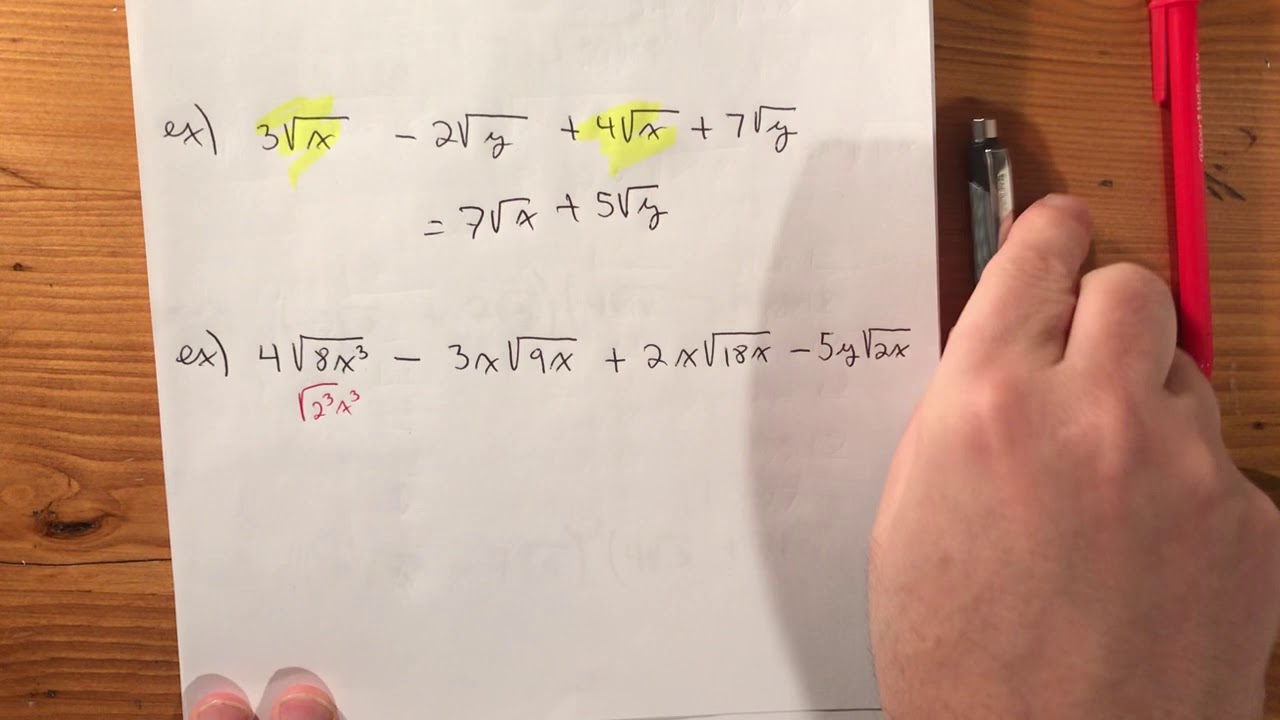 ex) 3√x - 2√y + 4√x + 7√y
= 7√x + 5√y
ex) 4√8x³ - 3x√9x + 2x√18x - 5y√2x
√2³x³